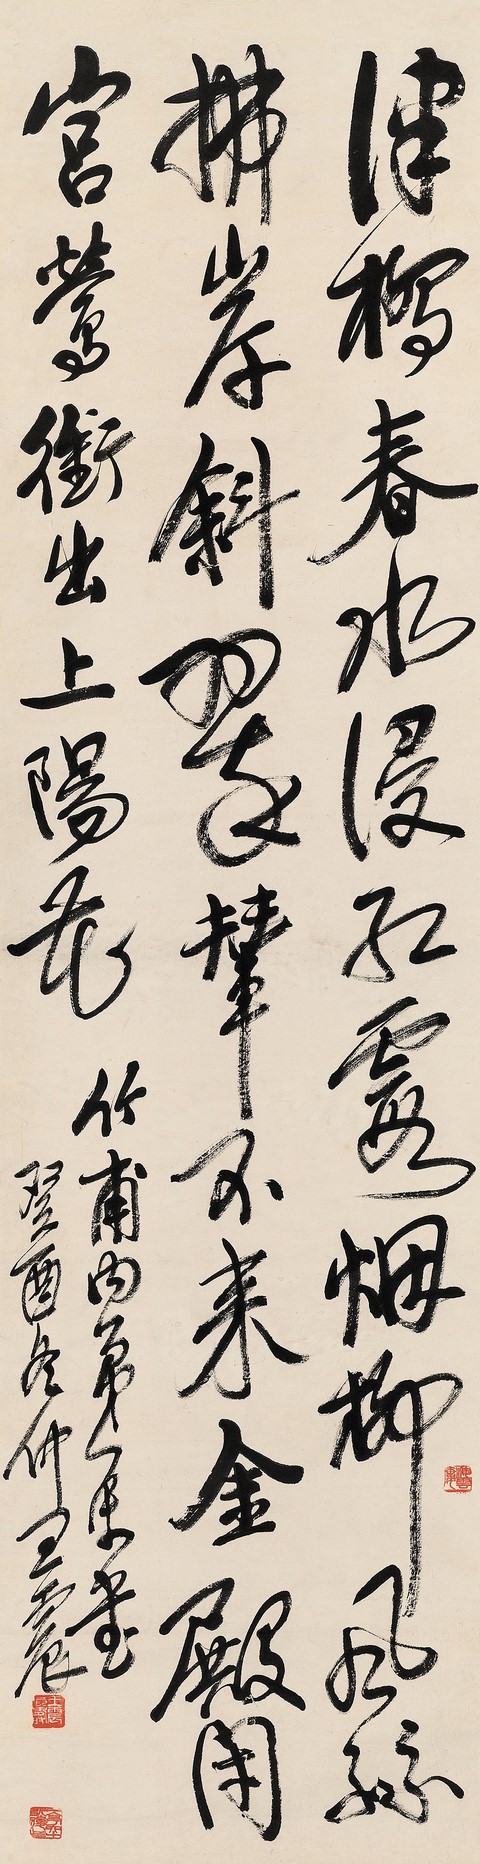 津橋春水浸紅霞烟柳風絲
拂岸斜翠輦不来金殿閉
宮鶯銜出上陽花
竹甫内弟書
癸酉冬仲王震